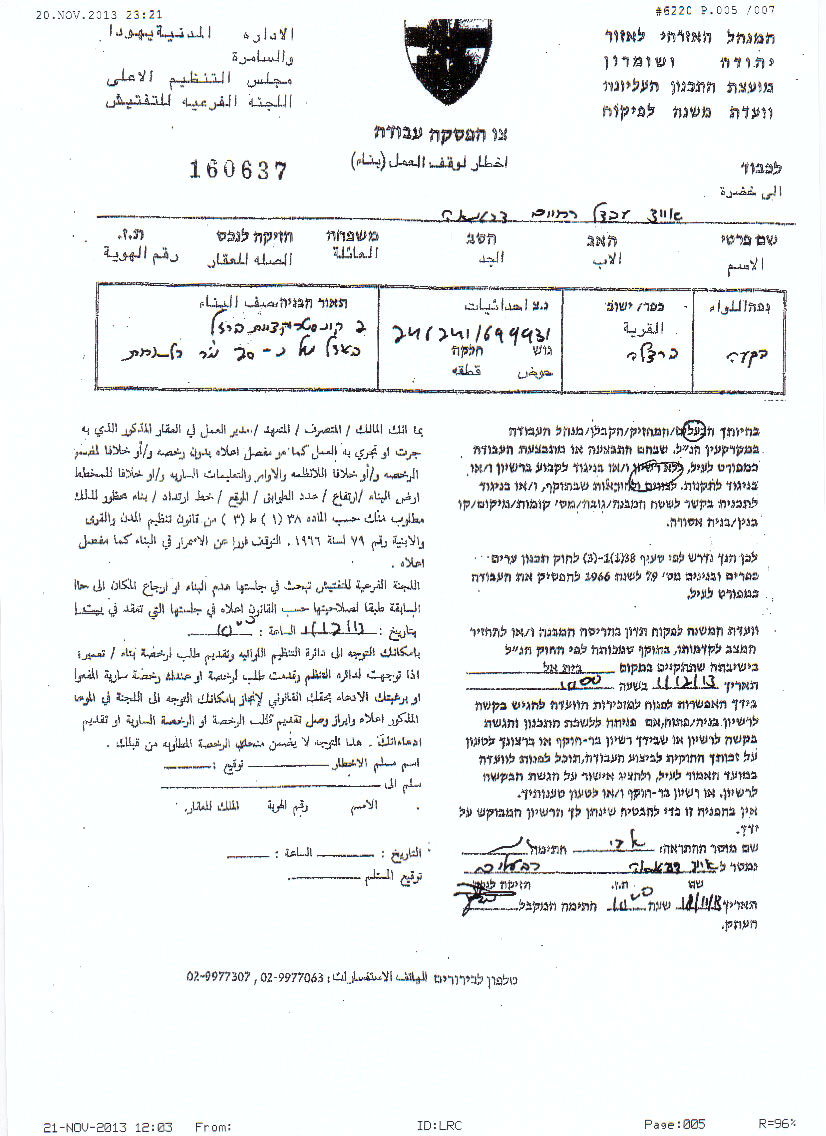 20.NOV.2013 23:21
#6220 P.005 /007
המנהל האזרחי לאזור
יהודה ושומרון
מועצת התכנון העליונה
וועדת משנה לפיקוח
الاداره المدنية يهودا
والسامرة
مجلس التنظيم الاعلى
اللجنه الفرعيه للتفتيش
צו הפסקה עבודה
اخطار لوقف العمل (بناء)
160637
לכבוד
الى حضرة
שם פרטי האב הסב משפחה הזיקה לנכס ת.ז.
الاسم الاب الجد العائلة الصله للعقار رقم الهوية
נפה اللواء
בקעה
כפר/ ישוב
القرية
ברדלה
נ.צ احداثيات
241241/699931
גוש חלקה
حوض قطعه
תאור הבניה وصف البناء
2 קונסטרוקציות ברזל
בהיותך הבעלים/המחזיק/הקבלן/מנהל העבודה
במקרקעין הנ"ל, שבהם התבצעה או מתבצעת העבודה
כמפורט לעיל, ללא רשיון ו/או בניגוד לקבוע ברשיון ו/או
בניגוד לתקנות, לצווים ולהוראות שבתוקף, ו/או בניגוד
לתכנית בקשר לשטח המבנה/גובה/מס' קומות/מיקום/קו
בנין/בניה אסורה.
לכן הנך נדרש לפי סעיף 38(1)-(3) לחוק תכנון ערים
כפרים ובנינים מס' 79 לשנת 1966 להפסיק את העבודה
כמפורט לעיל.
וועדת המשנה לפקוח תדון בהריסת המבנה ו/או להחזיר
המצב לקדמותו, בתוקף סמכותה לפי החוק הנ"ל
בישיבתה שתתקיים במקום בית אל
תאריך 11/12/13 בשעה 10:00
בידך האפשרות לפנות למזכירות הוועדה להגיש בקשה
לרשיון בניה/פתוח, אם פניתה ללשכת התכנון והגשת
בקשה לרשיון או שבידך רשיון בר-תוקף או ברצונך לטעון
על זכותך החוקית לביצוע העבודה, תוכל לפנות לוועדה
במועד האמור לעיל, ולהציג אישור על הגשת הבקשה
לרשיון, או רשיון בר-תוקף ו/או לטעון טענותיך.
אין בהפניה זו בדי להבטיח שינתן לך הרשיון המבוקש על
ידך.
שם מוסר ההתראה: חתימה
נמסר ל
שם ת.ז. הזיקה לנכס
תאריך 18/11/13 שעה חתימה המקבל
העתק.
بما انك المالك / المتصرف / المتعهد / مدير العمل في العقار المذكور الذي به
جرت او تجري به العمل كما هو مفصل اعلاه بدون رخصه و/أو خلافا
الرخصه و/أو خلافا للانظمه والاوامر والتعليمات الساريه و/او خلافا للمخطط
ارض البناء /ارتفاع / عدد الطوابق / الموقع / خط ارتداد / بناء محظور لذلك
مطلوب منك حسب الماده ٣٨ (١) ط (٣) من قانون تنظيم المدن والقرى
والابنية رقم ٧٩ لسنة ١٩٦٦. التوقف فورا عن الاستمرار في البناء كما مفصل
اعلاه .
اللجنة الفرعية للتفتيش تبحث في جلستها هدم البناء او ارجاع المكان الى
السابقة طبقا لصلاحيتها حسب القانون اعلاه في جلستها التي تنعقد في
بتاريخ : 11/12/13 الساعة :
بامكانك التوجه الى دائرة التنظيم اللوائيه وتقديم طلب لرخصة بناء / تعمير؛
اذا توجهت لدائره التنظيم وقدمت طلب لرخصة او عندك رخصة سارية
او برغبتك الادعاء بحقك القانوني لانجاز بامكانك التوجه الى اللجنة في
المذكور اعلاه وابراز وصل تقديم طلب الرخصة او الرخصة السارية او تقديم
ادعاءاتك . هذا التوجه لا يضمن منحك الرخصة المطلوبه من قبلك .
اسم مسلم الاخطار توقيع :
سلم الى
الاسم رقم الهوية المالك للعقار.
التاريخ : الساعة :
توقيع المستلم
טלפון לבירורים الهاتف الاستفسارات: 02-9977063 , 02-9977307
21-NOV-2013 12:03 From: ID:LRC Page:005 R=96%